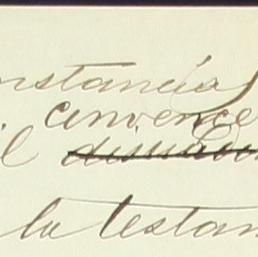 nstancias
convence
il
la testam